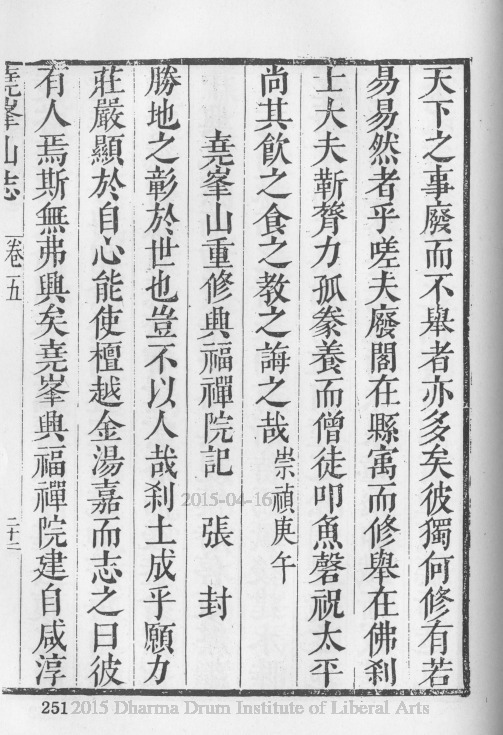 天下之事廢而不舉者亦多矣彼獨何修有若
易易然者乎嗟夫廢閣在縣寓而修舉在佛刹
士大夫靳膂力孤豢養而僧徒叩魚磬祝太平
尚其飲之食之教之誨之哉崇禎庚午
堯峯山重修興福禪院記 張 封
勝地之彰於世也豈不以人哉刹土成乎願力
莊嚴顯於自心能使檀越金湯嘉而志之曰彼
有人焉斯無弗興矣堯峯興福禪院建自咸淳
堯峯山志 卷五 二十二
2015-04-16
251 2015 Dharma Drum Institute of Liberal Arts